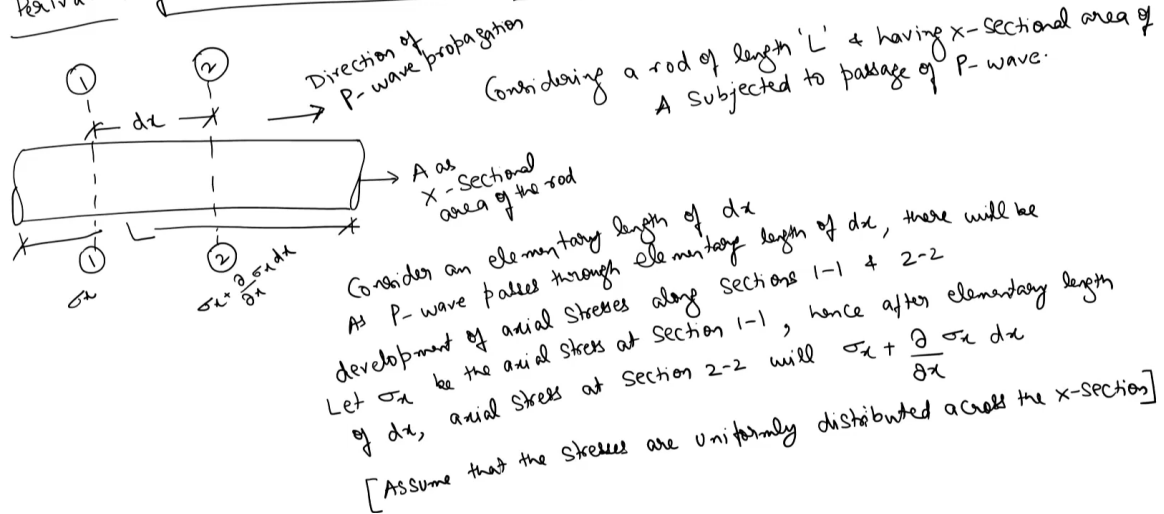 ①
②
dx
Direction of
P-wave propagation
Considering a rod of length 'L' & having x-sectional area of
A subjected to passage of P-wave.
A as
X-Sectional
area of the rod
L
①
②
σx
σx + ∂/∂x σx dx
Consider an elementary length of dx
As P-wave passes through elementary length of dx, there will be
development of axial stresses along sections 1-1 & 2-2
Let σx be the axial stress at section 1-1, hence after elementary length
of dx, axial stress at section 2-2 will σx + ∂/∂x σx dx
[Assume that the stresses are uniformly distributed across the x-section]